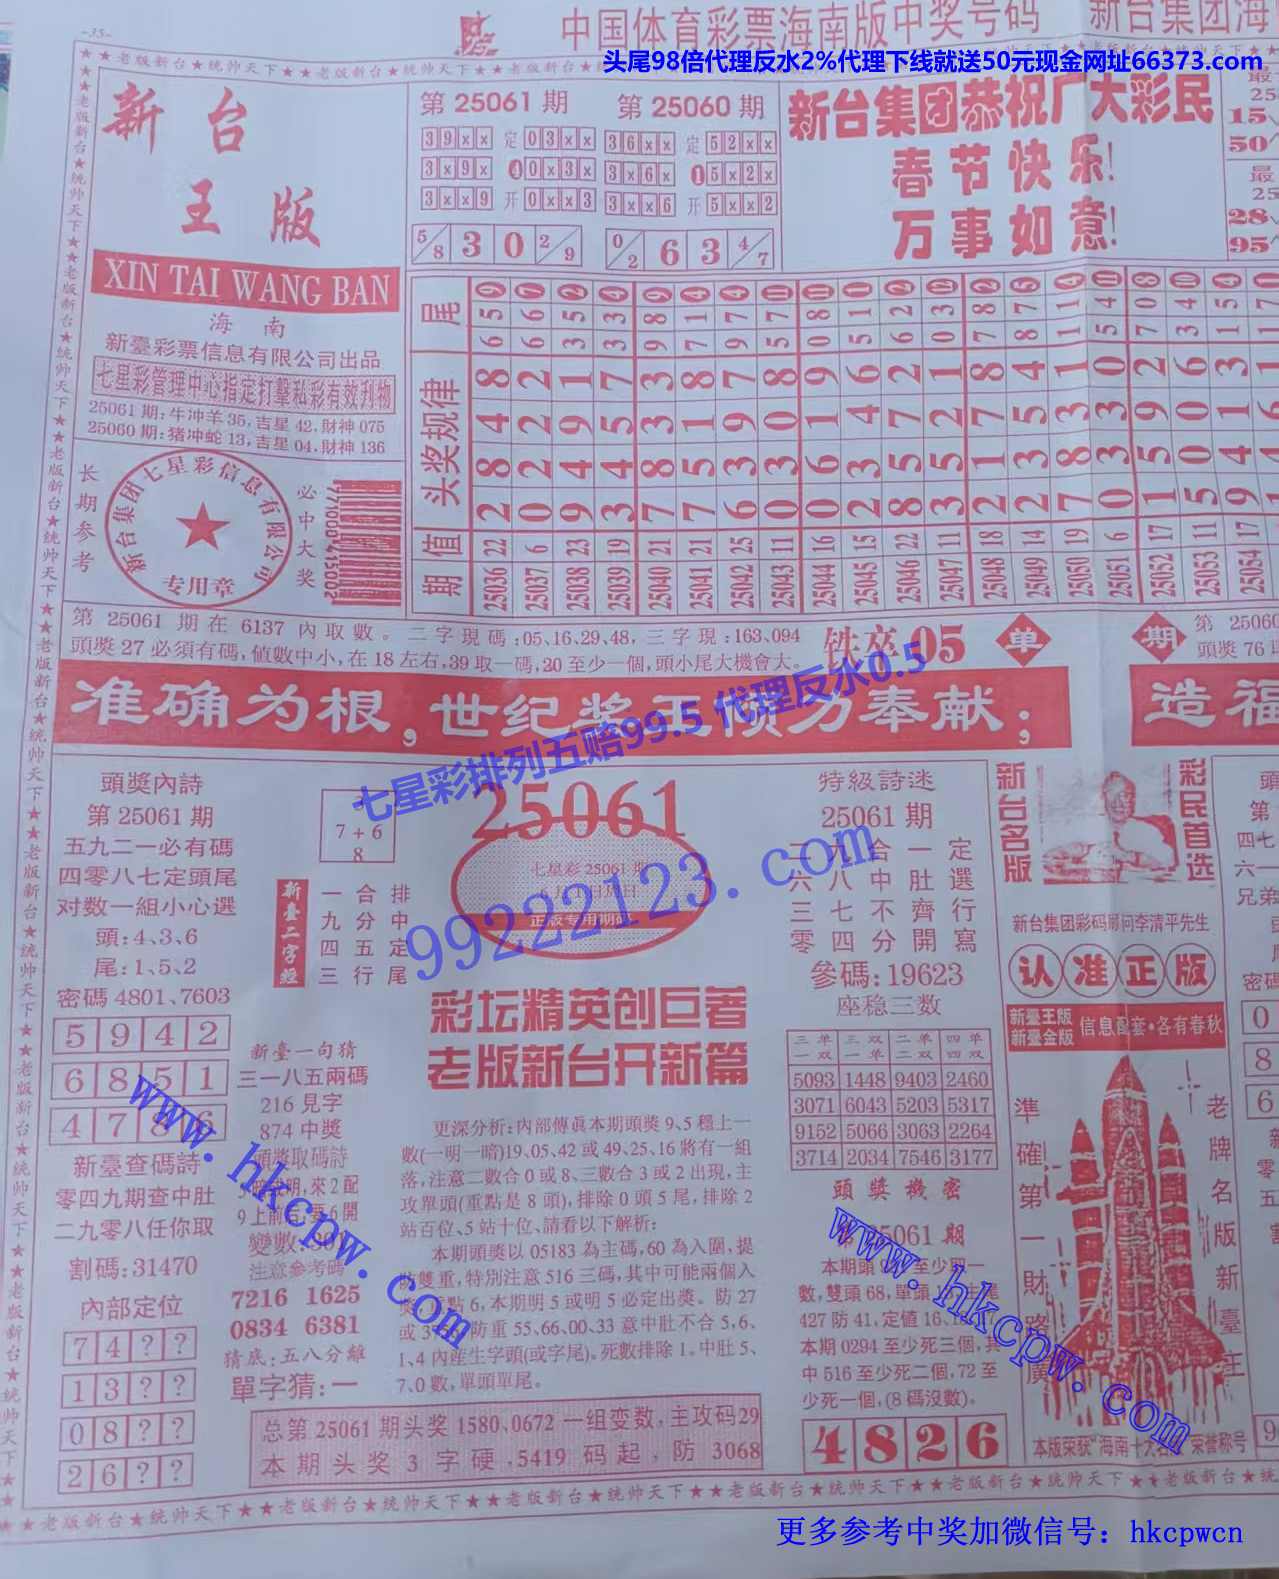 -35-
中国体育彩票海南版中奖号码 新台集团海
头尾98倍代理反水2%代理下线就送50元现金网址66373.com
★★老版新台★统帅天下★★老版新台★统帅天下★
新台
王版
XIN TAI WANG BAN
海南
新臺彩票信息有限公司出品
七星彩管理中心指定打擊私彩有效刋物
25061期:牛冲羊35,吉星42,財神075
25060期:猪冲蛇13,吉星04,財神136
长期参考
新台集团七星彩信息有限公司
专用章
必中大奖
第25061期
39xx 定 03xx
3x9x 4 0x3x
3xx9 开 0xx3
5/8 3 0 2/9
第25060期
36xx 定 52xx
3x6x 1 5x2x
3xx6 开 5xx2
0/2 6 3 4/7
新台集团恭祝广大彩民
春节快乐!
万事如意!
最
25
15、
50
最
25
28、
95
尾
头奖规律
值
期
25036 22 2848
25037 6 0222
25038 23 9491
25039 19 3457
25040 21 7833
25041 21 7518
25042 25 6397
25043 11 0308
25044 16 0619
25045 15 2346
25046 22 8572
25047 11 3521
25048 18 2178
25049 14 2354
25050 19 7831
25051 6 0330
25052 17 1592
25053 11 5006
25054 17 9413
第25061期在6137內取數。二字現碼:05,16.29,48,三字現:163,094
頭獎27必須有碼,値數中小,在18左右,39取一碼,20至少一個,頭小尾大機會大。
铁卒05
单
期
第25060
頭獎76
准确为根,世纪奖王倾力奉献;
造福
七星彩排列五赔99.5 代理反水0.5
頭獎內詩
第25061期
五九二一必有碼
四零八七定頭尾
对数一組小心選
頭:4、3、6
尾:1、5、2
密碼4801、7603
5942
6851
478 6
新臺查碼詩
零四九期查中肚
二九零八任你取
割碼:31470
內部定位
74??
13??
08??
26??
7+6
8
新臺二字經
一合排
九分中
四五定
三行尾
新臺一句猜
三一八五兩碼
216見字
874中獎
頭獎取碼詩
注意參考碼
7216 1625
0834 6381
猜底:五八分離
單字猜:一
25061
七星彩25061期
正版专用期
99222123.com
彩坛精英创巨著
老版新台开新篇
更深分析:內部傳眞本期頭獎9、5穩上一
數(一明一暗)19、05、42或49、25、16將有一組
落,注意二數合0或8、三數合3或2出現,主
攻單頭(重點是8頭),排除0頭5尾,排除2
站百位、5站十位、請看以下解析:
本期頭獎以05183為主碼,60為入圍,提
防雙重,特別注意516三碼,其中可能兩個入
獎,重點6,本期明5或明5必定出獎。防27
或3 防重55、66、00、33意中肚不合5、6、
1、4內産生字頭(或字尾)。死數排除1。中肚5、
7、0數,單頭單尾。
总第25061期头奖1580、0672一组变数,主攻码29
本期头奖3字硬,5419码起,防3068
特級詩迷
25061期
二九合一定
六八中肚選
三七不齊行
零四分開寫
參碼:19623
座稳三数
三单一双 三双一单 二单二双 四单四双
5093 1448 9403 2460
3071 6043 5203 5317
9152 5066 3063 2264
3714 2034 7546 3177
頭獎機密
第25061期
427防41,定值16、
本期0294至少死三個,其
中516至少死二個,72至
少死一個,(8碼沒數)。
4826
新台名版
彩民首选
新台集团彩码顾问李清平先生
认准正版
新臺王版
新臺金版
信息配套·各有春秋
準確第一財路廣
老牌名版新臺王
本版荣获“海南十大名 荣誉称号
www.hkcpw.com
www.hkcpw.com
★老版新台★统帅天下★★老版新台★统帅天下★★老版新台★统帅天下★★老版新台★统帅天下★★老版新台★统
更多参考中奖加微信号：hkcpwcn